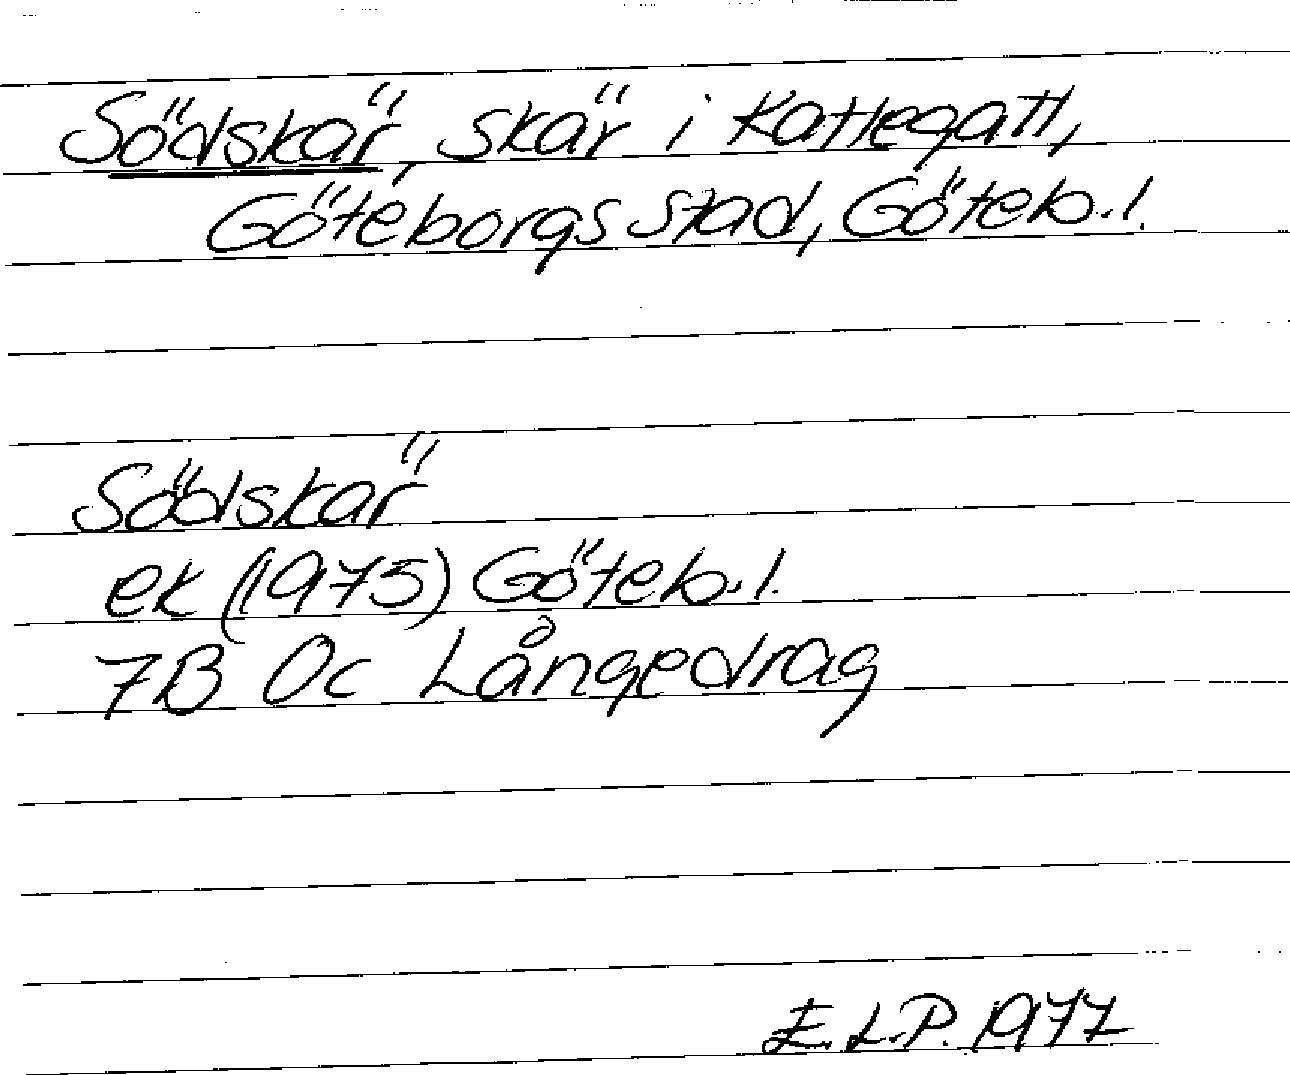 Södskär, skär i Kattegatt,
Göteborgs stad, Göteb. l.
Södskär
ek (1975) Göteb. l.
7B 0c Långedrag
E.L.P. 1977